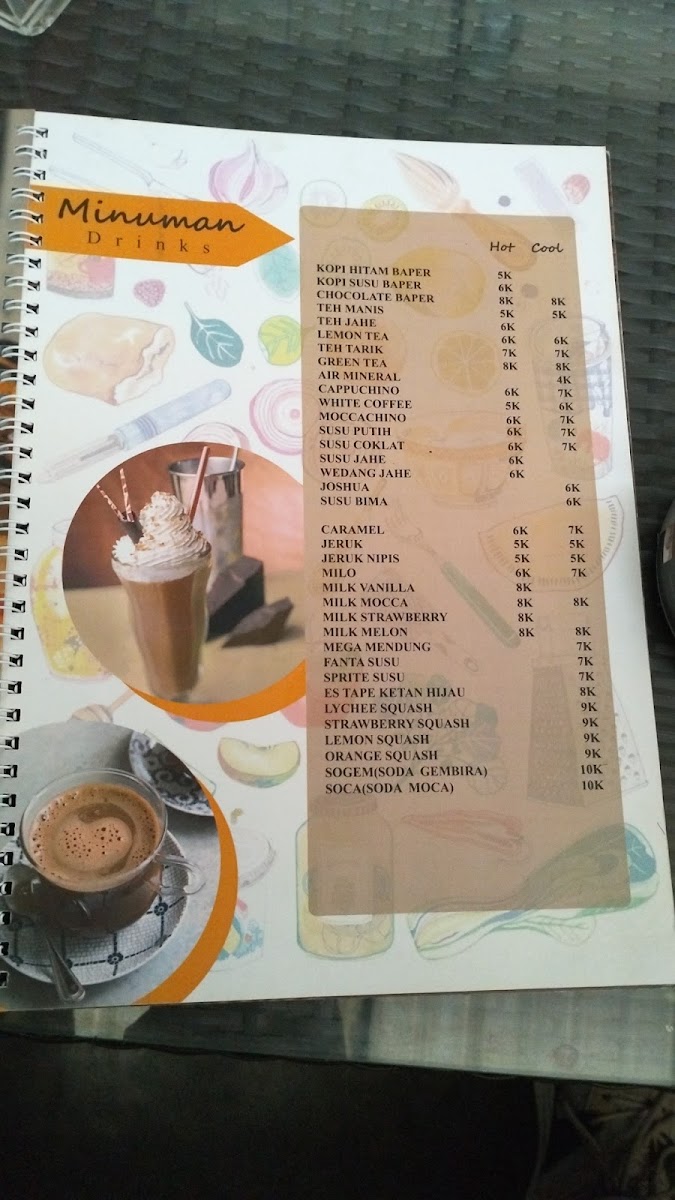 Minuman
Drinks
Hot Cool
KOPI HITAM BAPER 5K
KOPI SUSU BAPER 6K
CHOCOLATE BAPER 8K 8K
TEH MANIS 5K 5K
TEH JAHE 6K
LEMON TEA 6K 6K
TEH TARIK 7K 7K
GREEN TEA 8K 8K
AIR MINERAL 4K
CAPPUCHINO 6K 7K
WHITE COFFEE 5K 6K
MOCCACHINO 6K 7K
SUSU PUTIH 6K 7K
SUSU COKLAT 6K 7K
SUSU JAHE 6K
WEDANG JAHE 6K
JOSHUA 6K
SUSU BIMA 6K
CARAMEL 6K 7K
JERUK 5K 5K
JERUK NIPIS 5K 5K
MILO 6K 7K
MILK VANILLA 8K
MILK MOCCA 8K 8K
MILK STRAWBERRY 8K
MILK MELON 8K 8K
MEGA MENDUNG 7K
FANTA SUSU 7K
SPRITE SUSU 7K
ES TAPE KETAN HIJAU 8K
LYCHEE SQUASH 9K
STRAWBERRY SQUASH 9K
LEMON SQUASH 9K
ORANGE SQUASH 9K
SOGEM(SODA GEMBIRA) 10K
SOCA(SODA MOCA) 10K